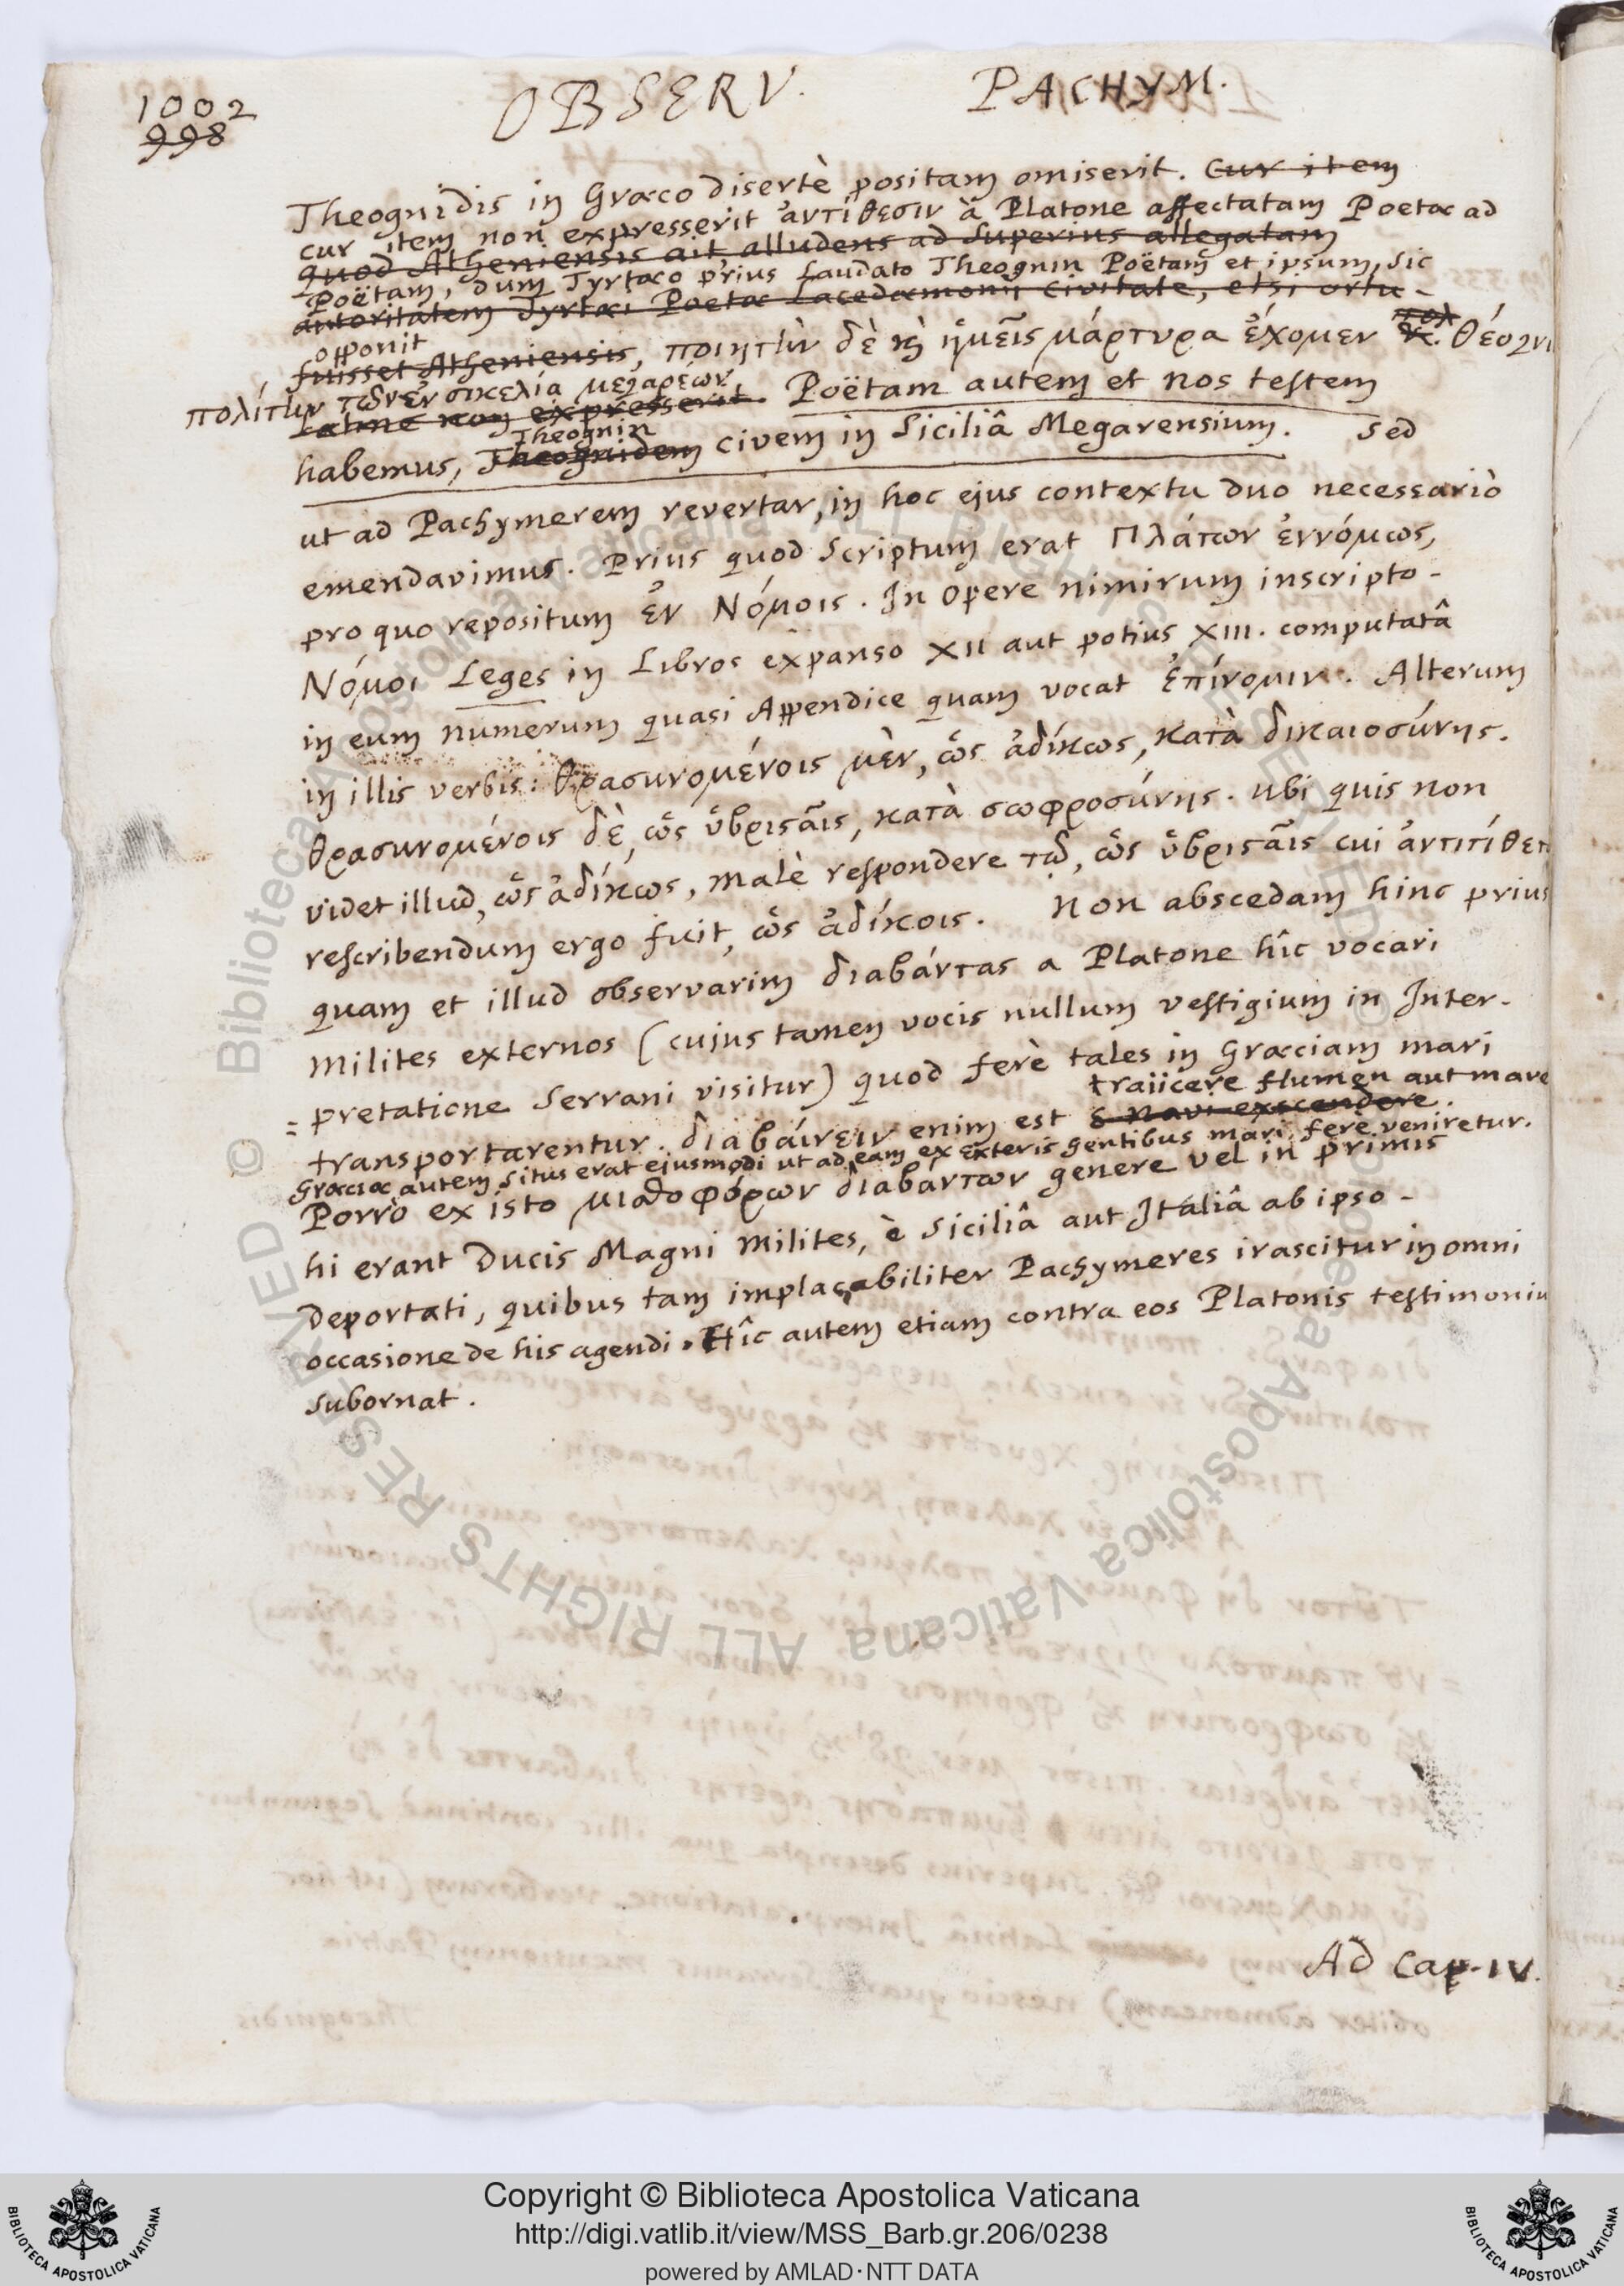 1002
998
OBSERV. PACHYM.
Theognidis in Græco disertè positam omiserit. Cur item
cur item non expresserit ἀντίθεσιν à Platone affectatam Poetæ ad
quod Atheniensis ait alludens ad superius allegatam
Poëtam, dum Tyrtæo prius laudato Theognin Poëtam et ipsum, sic
autoritatem Tyrtæi Poetæ Lacedæmonii civitate, etsi ortu
opponit
fuisset Atheniensis, ποιητὴν δὲ καὶ ἡμεῖς μάρτυρα ἔχομεν Θέογνι
πολίτην τῶν ἐν σικελίᾳ μεγαρέων.
Latine non expresserit. Poëtam autem et nos testem
Theognin
habemus, Theognidem civem in Siciliâ Megarensium. Sed
ut ad Pachymerem revertar, in hoc ejus contextu duo necessariò
emendavimus. Prius quod scriptum erat Πλάτων ἐννόμως,
pro quo repositum ἐν Νόμοις. In opere nimirum inscripto
Νόμοι Leges in Libros expanso XII aut potius XIII. computatâ
in eum numerum quasi Appendice quam vocat ἐπίνομιν. Alterum
in illis verbis: θρασυνομένοις μὲν, ὡς ἀδίκως, κατὰ δικαιοσύνης.
θρασυνομένοις δὲ, ὡς ὑβρισταῖς, κατὰ σωφροσύνης. ubi quis non
videt illud, ὡς ἀδίκως, malè respondere τῷ, ὡς ὑβρισταῖς cui ἀντιτίθετ
rescribendum ergo fuit, ὡς ἀδίκοις. Non abscedam hinc prius
quam et illud observarim διαβάντας a Platone hîc vocari
milites externos (cujus tamen vocis nullum vestigium in Inter-
=pretatione Serrani visitur) quod ferè tales in Græciam mari
traiicere flumen aut mare
transportarentur. διαβαίνειν enim est è navi exscendere.
Græciæ autem situs erat ejusmodi ut ad eam ex exteris gentibus mari ferè veniretur.
Porrò ex isto μισθοφόρων διαβάντων genere vel in primis
hi erant Ducis Magni milites, è Siciliâ aut Italiâ ab ipso
deportati, quibus tam implacabiliter Pachymeres irascitur in omni
occasione de his agendi. Hîc autem etiam contra eos Platonis testimoniu
subornat.
Ad Cap. IV.
© Biblioteca Apostolica Vaticana ALL RIGHTS RESERVED
© Biblioteca Apostolica Vaticana ALL RIGHTS RESERVED
Copyright © Biblioteca Apostolica Vaticana
http://digi.vatlib.it/view/MSS_Barb.gr.206/0238
powered by AMLAD·NTT DATA
BIBLIOTECA APOSTOLICA VATICANA
BIBLIOTECA APOSTOLICA VATICANA